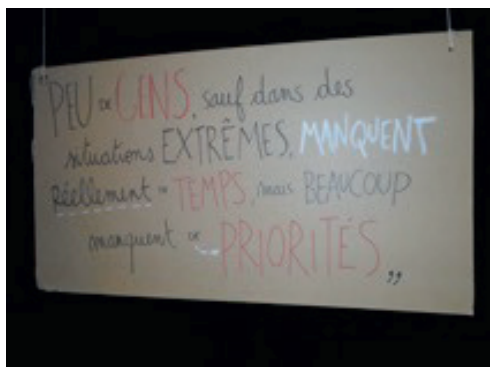 "PEU DE GENS, sauf dans des
situations EXTRÊMES, MANQUENT
Réellement DE TEMPS, mais BEAUCOUP
manquent DE PRIORITÉS „